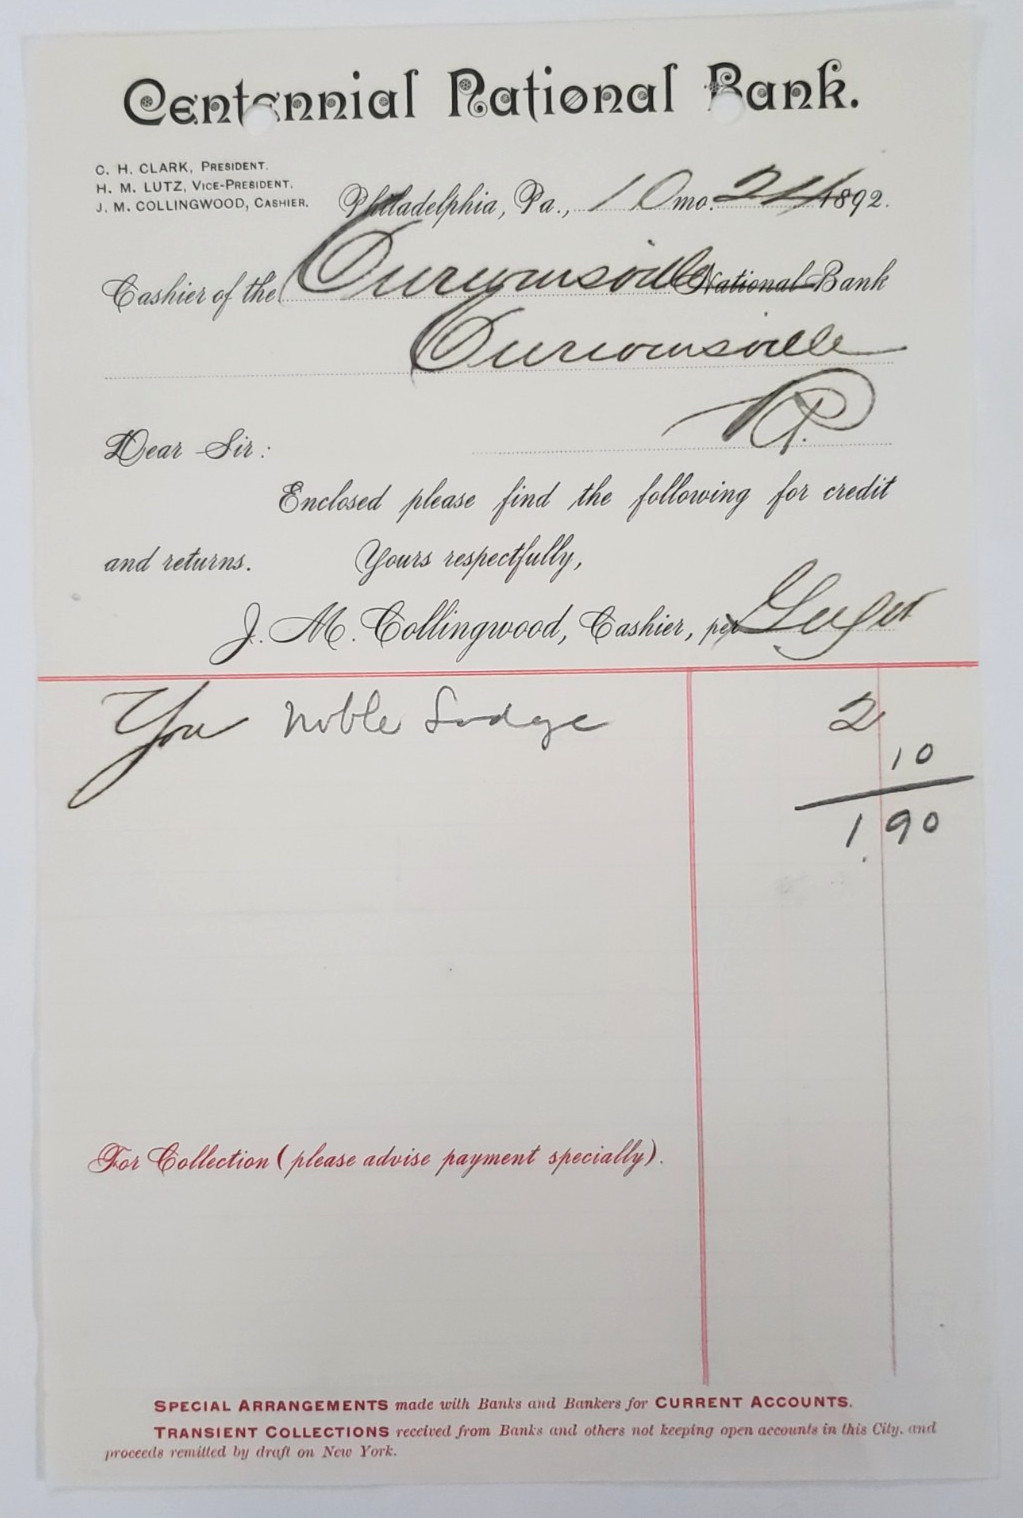 Centennial National Bank.
C. H. CLARK, PRESIDENT.
H. M. LUTZ, VICE-PRESIDENT.
J. M. COLLINGWOOD, CASHIER.
Philadelphia, Pa., 10 mo. 24 1892.
Cashier of the Curwensville National Bank
Curwensville
Pa.
Dear Sir:
Enclosed please find the following for credit
and returns. Yours respectfully,
J. M. Collingwood, Cashier, per
You Noble Lodge 2
10
1.90
For Collection (please advise payment specially).
SPECIAL ARRANGEMENTS made with Banks and Bankers for CURRENT ACCOUNTS.
TRANSIENT COLLECTIONS received from Banks and others not keeping open accounts in this City, and
proceeds remitted by draft on New York.